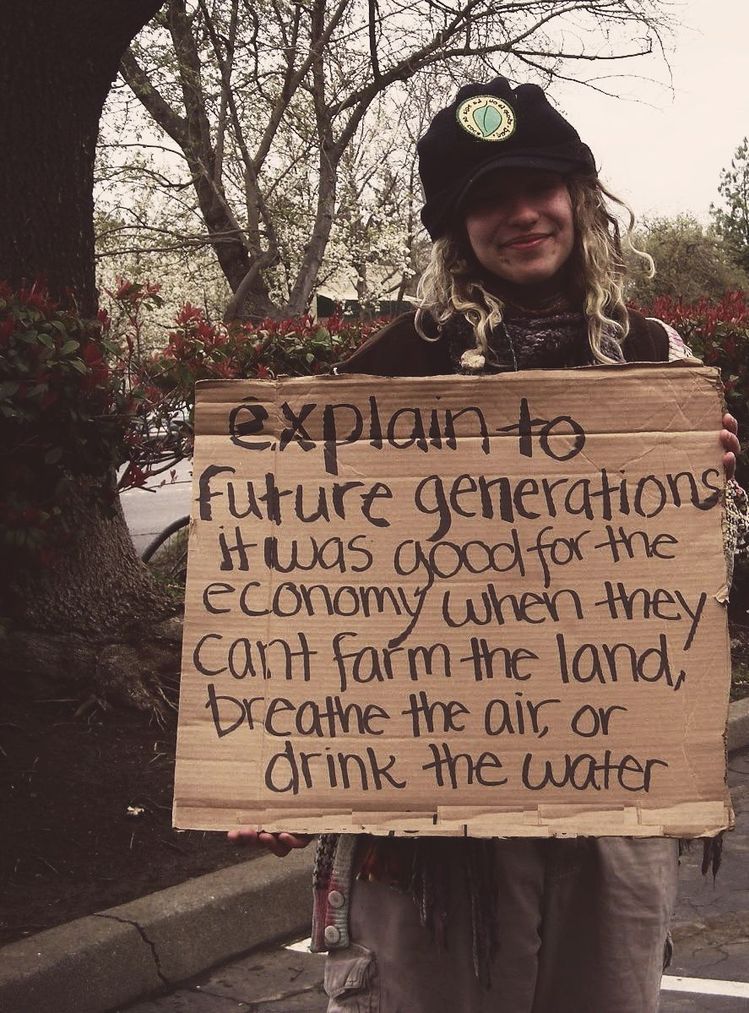 explain to
future generations
it was good for the
economy when they
cant farm the land,
breathe the air, or
drink the water